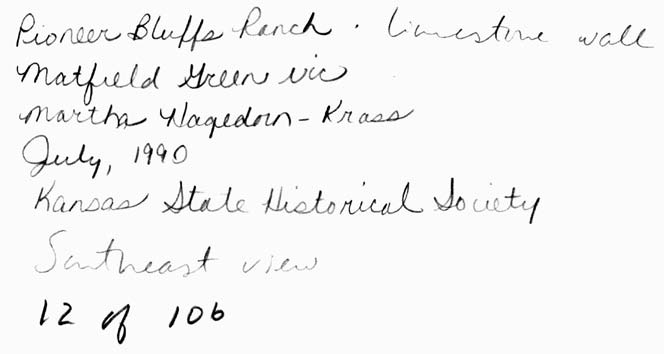 Pioneer Bluffs Ranch . Limestone wall
Matfield Green vic
Martha Hagedorn-Krass
July, 1990
Kansas State Historical Society
Southeast view
12 of 106